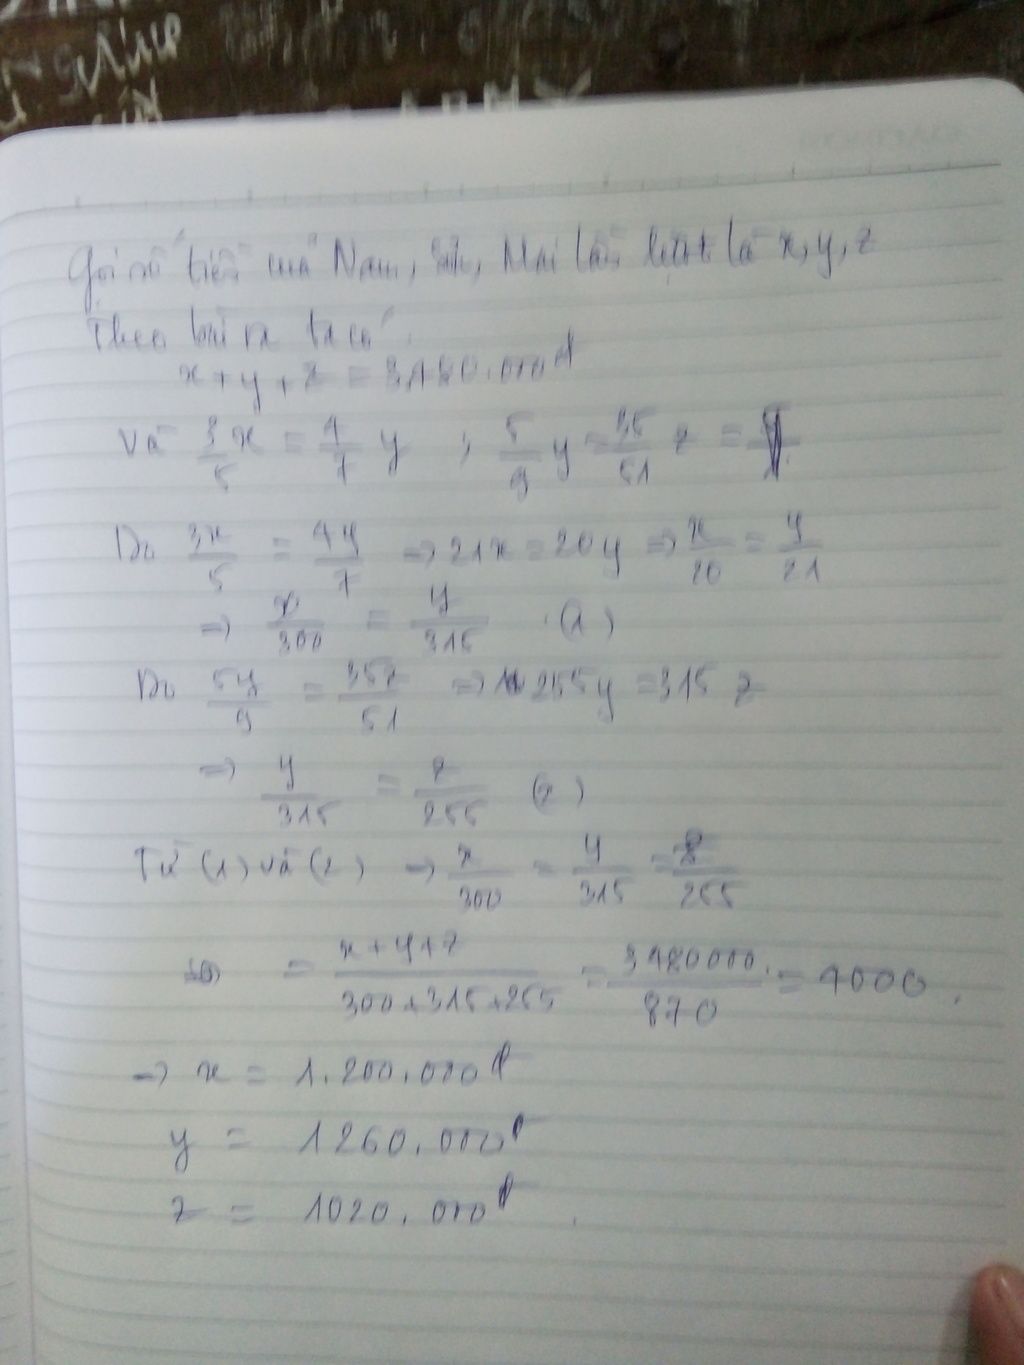 Gọi số tiền của Nam, , Mai lần lượt là x, y, z
Theo bài ra ta có
x + y + z = 3480.000đ
Và 3/5 x = 4/7 y ; 5/9 y = 35/51 z =
Do 3x/5 = 4y/7 → 21x = 20y → x/20 = y/21
→ x/300 = y/315 (1)
Do 5y/9 = 35z/51 → 255y = 315 z
→ y/315 = z/255 (2)
Từ (1) và (2) → x/300 = y/315 = z/255
= x+y+z/300+315+255 = 3480000/870 = 4000
→ x = 1.200.000đ
y = 1260.000đ
z = 1020.000đ